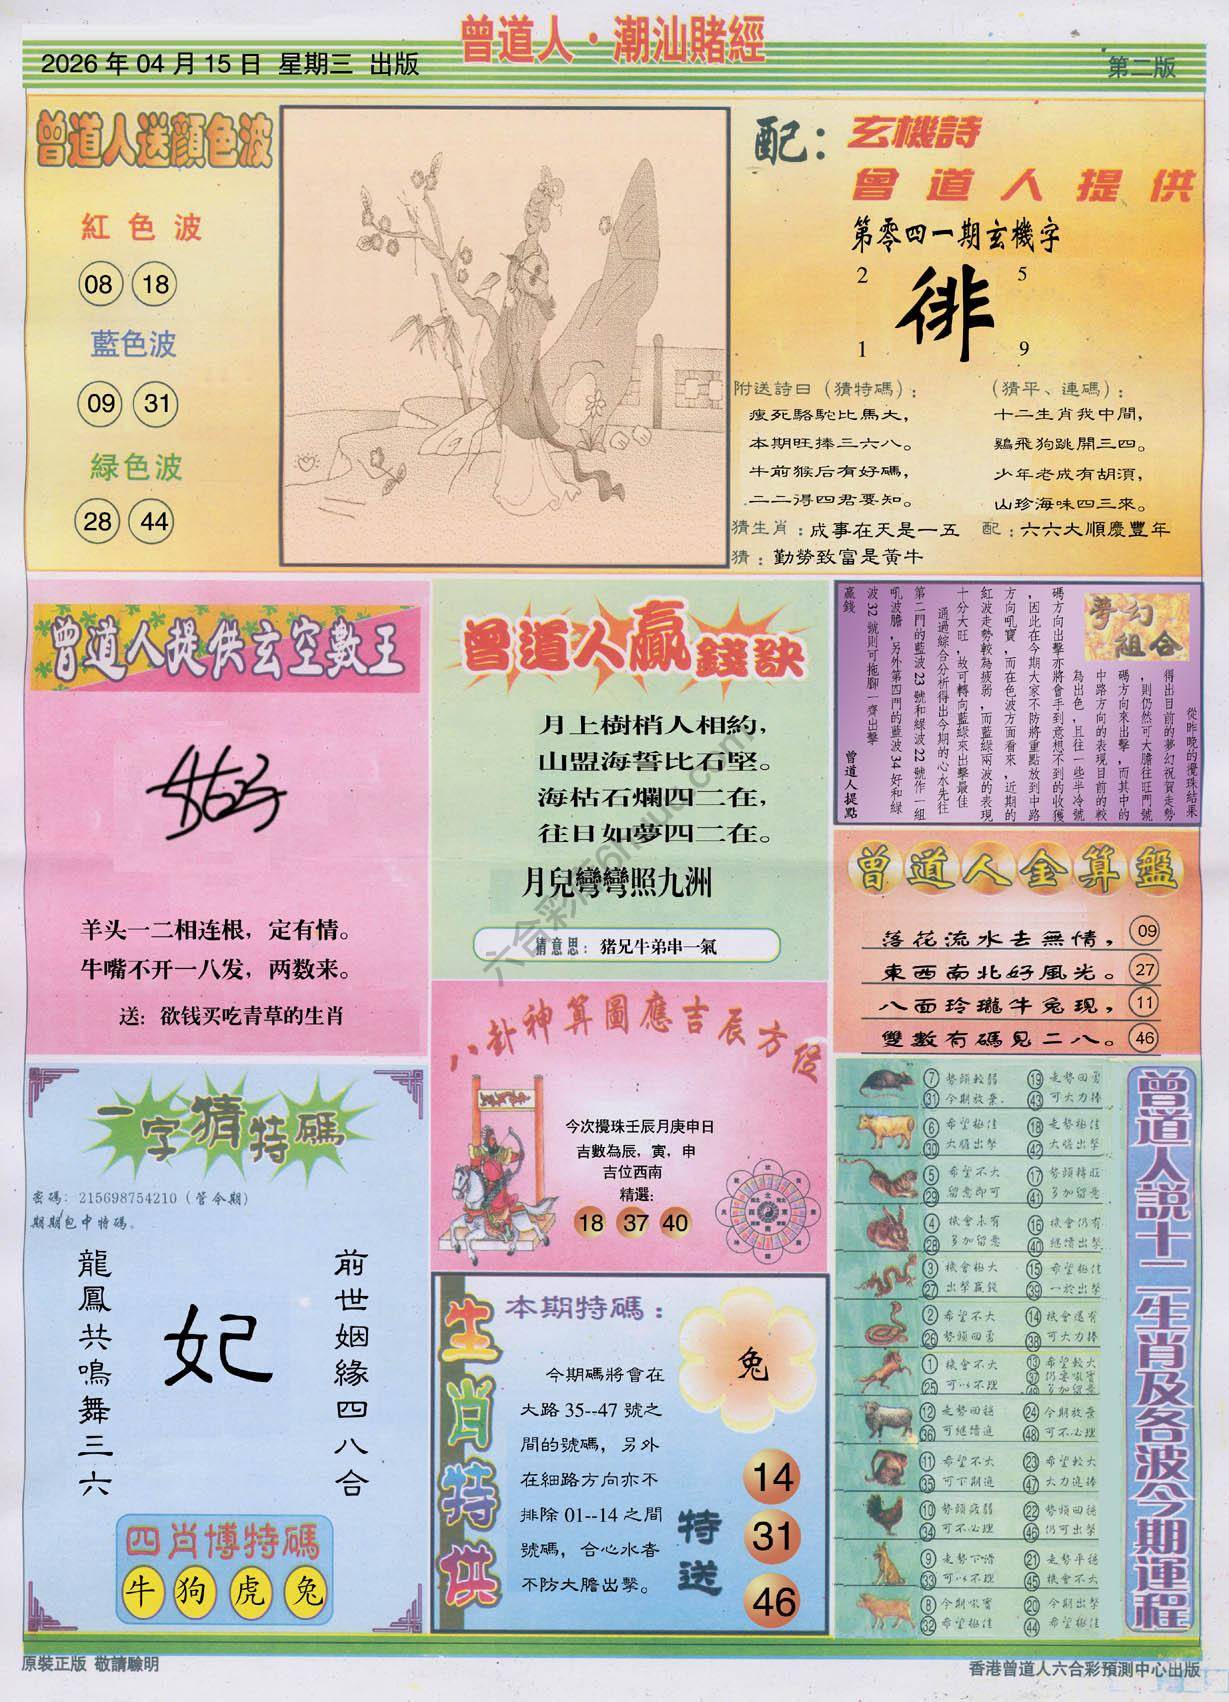 曾道人·潮汕賭經
2026 年 04 月 15 日 星期三 出版
第二版
曾道人送顏色波
紅色波
08 18
藍色波
09 31
緑色波
28 44
配：玄機詩
曾道人提供
第零四一期玄機字
2 5
徘
1 9
附送詩曰（猜特碼）：
瘦死駱駝比馬大，
本期旺捧三六八。
牛前猴后有好碼，
二二得四君要知。
（猜平、連碼）：
十二生肖我中間，
鷄飛狗跳開三四。
少年老成有胡須，
山珍海味四三來。
猜生肖：成事在天是一五
配：六六大順慶豐年
猜：勤勞致富是黃牛
曾道人提供玄空數王
羊头一二相连根，定有情。
牛嘴不开一八发，两数来。
送：欲钱买吃青草的生肖
曾道人贏錢訣
月上樹梢人相約，
山盟海誓比石堅。
海枯石爛四二在，
往日如夢四二在。
月兒彎彎照九洲
猜意思：猪兄牛弟串一氣
夢幻組合
從昨晚的攪珠結果
得出目前的夢幻祝賀走勢
，則仍然可大膽往旺門號
碼方向來出擊，而其中的
中路方向的表現目前的較
為出色，且往一些半冷號
碼方向出擊亦將會手到意想不到的收獲
，因此在今期大家不防將重點放到中路
方向吼寶，而在色波方面看來，近期的
紅波走勢較為疲弱，而藍綠兩波的表現
十分大旺，故可轉向藍綠來出擊最佳
通過綜合分析得出今期的心水先往
第二門的藍波 23 號和綠波 22 號作一組
吼波膽，另外第四門的藍波 34 好和綠
波 32 號則可拖腳一齊出擊
贏錢
曾道人提點
曾道人金算盤
落花流水去無情， 09
東西南北好風光。 27
八面玲瓏牛兔現， 11
雙數有碼見二八。 46
八卦神算圖應吉辰方位
今次攪珠壬辰月庚申日
吉數為辰，寅，申
吉位西南
精選：
18 37 40
一字猜特碼
密碼：215698754210（管令期）
期期包中特碼。
前世姻緣四八合
妃
龍鳳共鳴舞三六
四肖博特碼
牛 狗 虎 兔
生肖特供
本期特碼：
兔
今期碼將會在
大路 35--47 號之
間的號碼，另外
在細路方向亦不
排除 01--14 之間
號碼，合心水者
不防大膽出擊。
特送
14
31
46
曾道人說十二生肖及各波今期運程
7 勢頭較弱 19 走勢回勇
31 今期放棄 43 可大力捧
6 希望極佳 18 走勢極佳
30 大膽出擊 42 大膽出擊
5 希望不大 17 勢頭轉旺
29 留意即可 41 多加留意
4 機會未有 16 機會仍有
28 多加留意 40 繼續出擊
3 機會極大 15 希望極佳
27 出擊贏錢 39 一於出擊
2 希望不大 14 機會還有
26 勢頭回勇 38 可大力捧
1 機會不大 13 希望較大
25 可以不理 37 仍要吼實
49 多加留意
12 走勢回穩 24 今期放棄
36 可繼續追 48 可不必理
11 希望不大 23 希望較大
35 可下期追 47 大力追捧
10 勢頭疲弱 22 勢頭回穩
34 可不必理 46 仍可出擊
9 走勢下滑 21 走勢平穩
33 可以不理 45 機會不大
8 今期吼寶 20 今期出擊
32 希望極佳 44 希望極佳
原裝正版 敬請驗明
香港曾道人六合彩預測中心出版